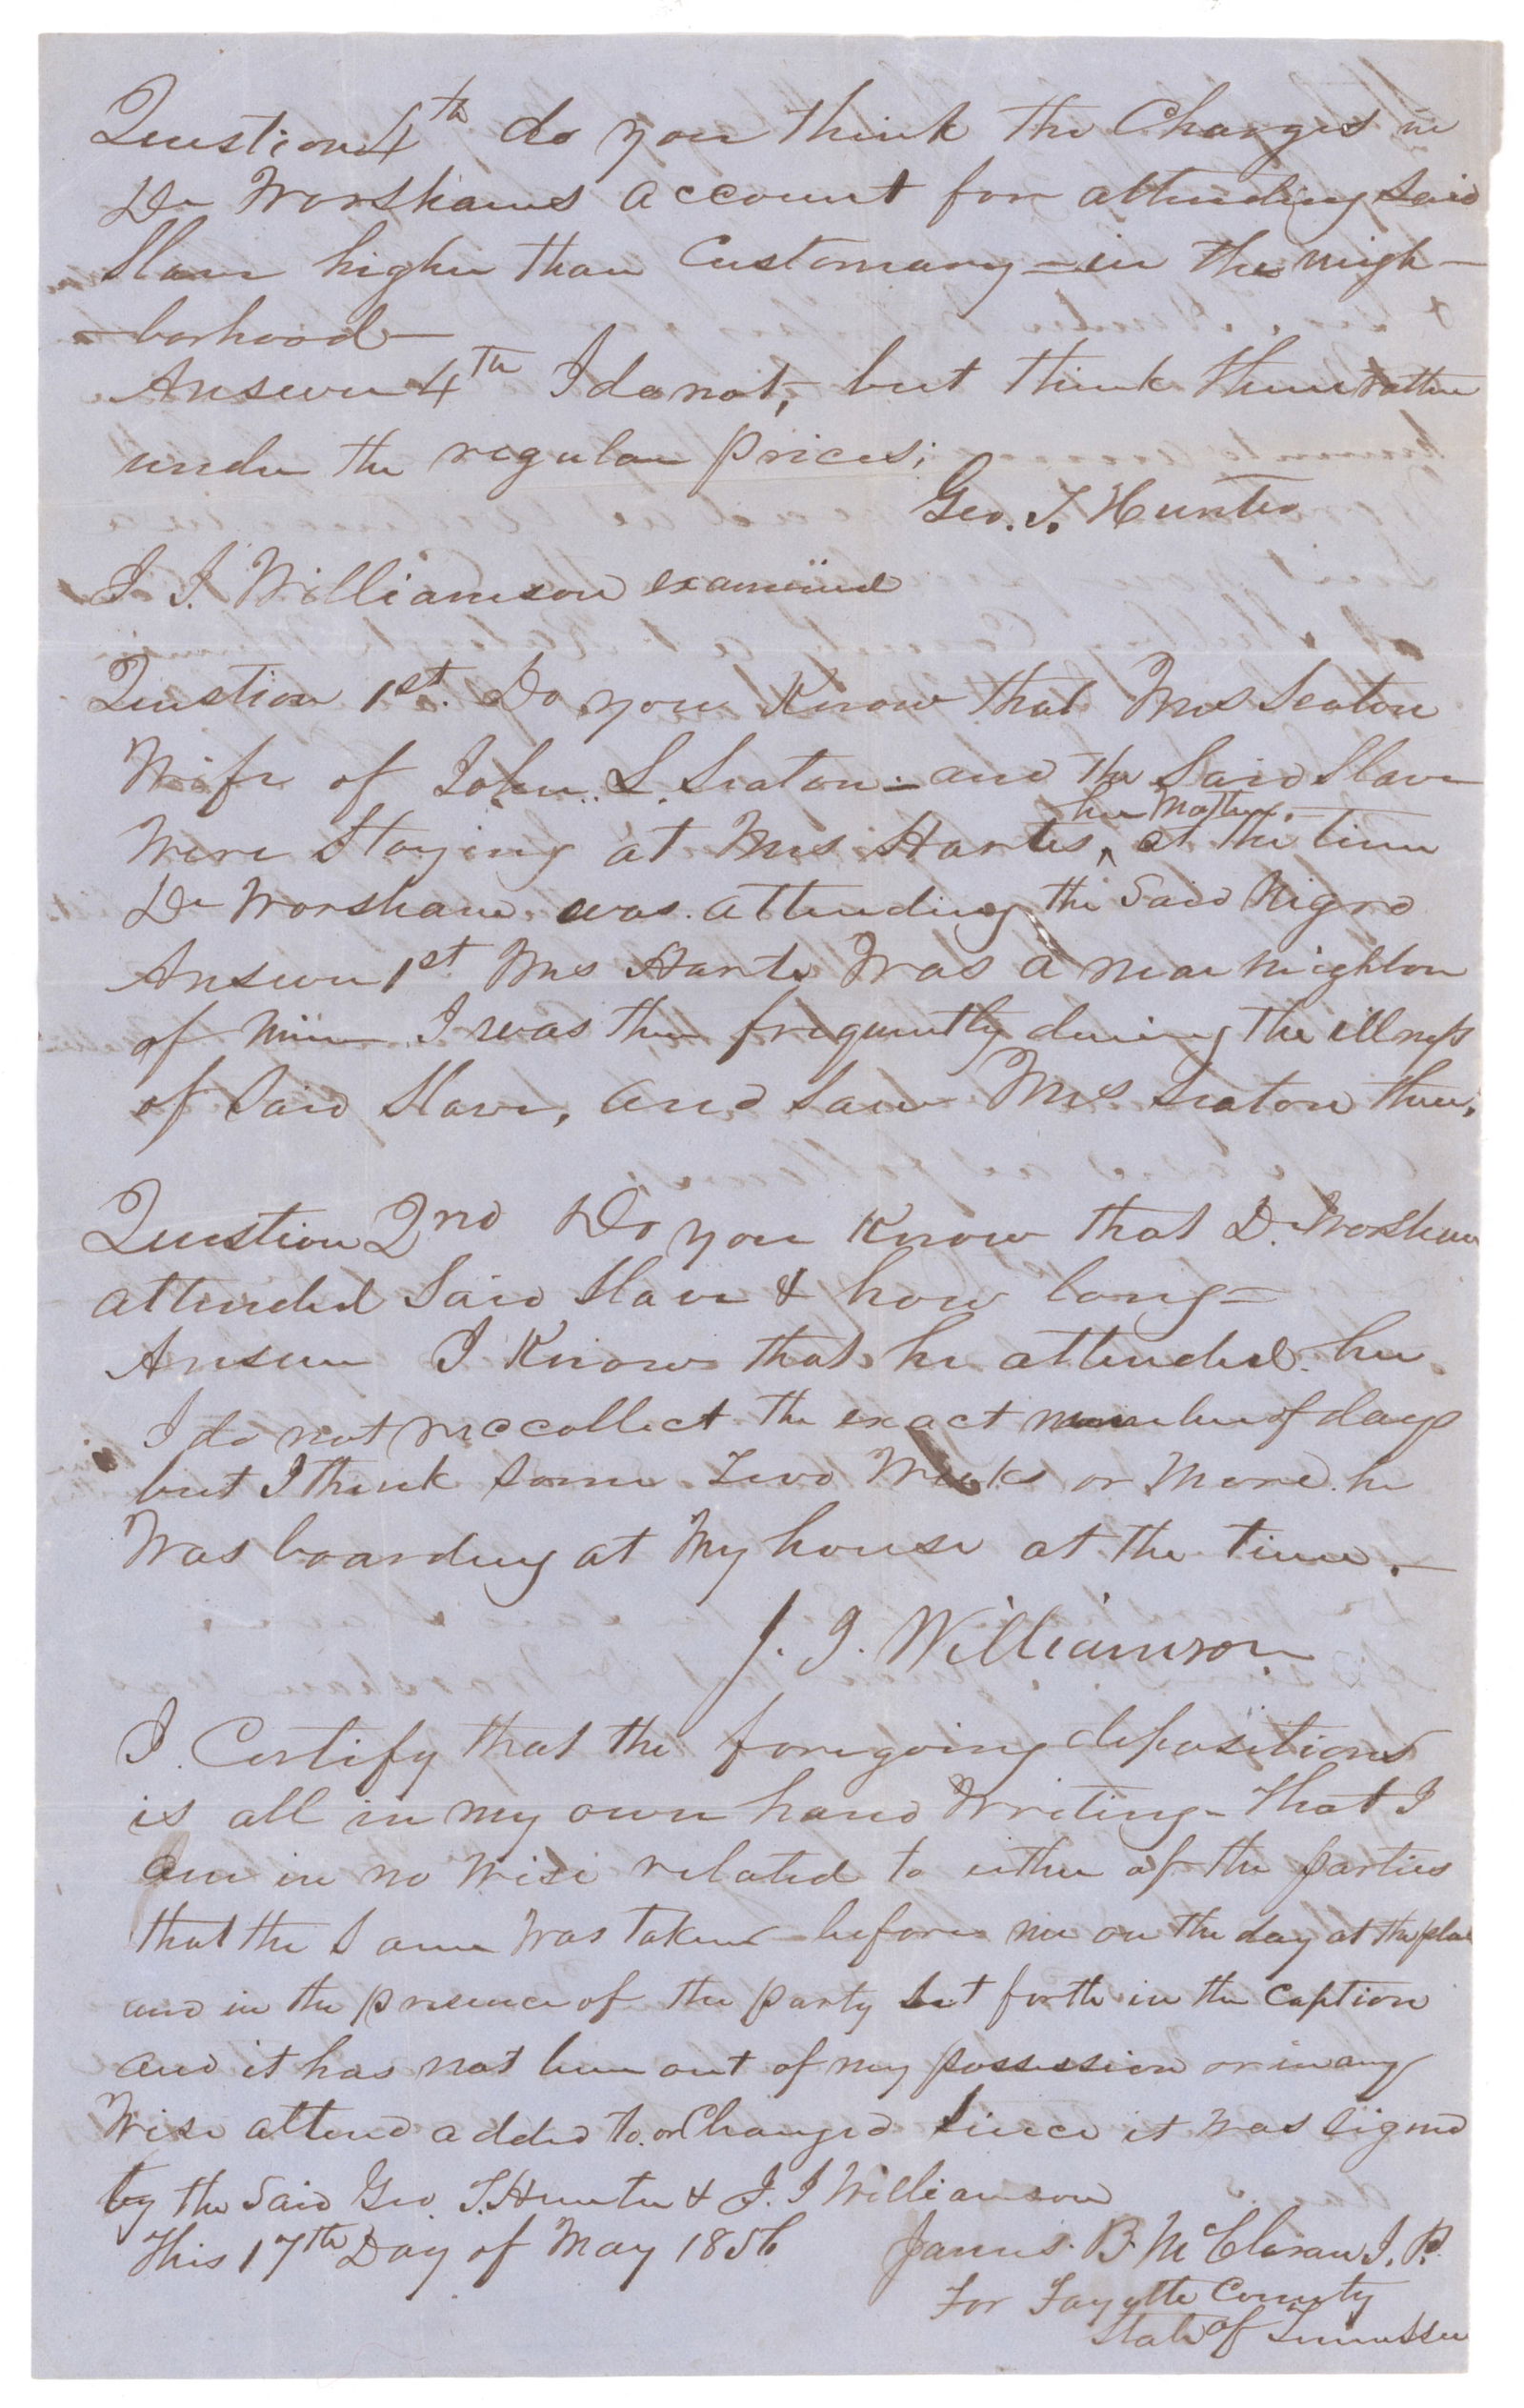 Question 4th do you think the Charges in
Dr Worshams account for attending Said
Slave higher than Customary - in the neigh-
-borhood -
Answer 4th I do not, but think them rather
under the regular prices;
Geo. T. Hunter
J. J. Williamson examined
Question 1st. Do you Know that Mrs Seaton
Wife of John. S. Seaton - and the Said Slave
her Mother. -
Were Staying at Mrs Harts, ^ at the time
Dr Worsham was attending the Said Negro
Answer 1st Mrs Harts Was a near neighbor
of mine I was there frequently during the illness
of Said Slave, and Saw Mrs Seaton there,
Question 2nd Do you Know that Dr. Worsham
attended Said Slave & how long -
Answer I Know that he attended her
I do not reccollect the exact number of days
but I think some Two Weeks or More. he
Was boarding at My house at the time. -
J. J. Williamson
I Certify that the foregoing depositions
is all in my own hand Writing - that I
am in no Wise related to either of the parties
that the Same Was taken before me on the day at the place
and in the presence of the party Set forth in the Caption
and it has not been out of my possession or in any
Wise altered added to. or Changed Since it was signed
by the Said Geo. T. Hunter & J. J Williamson
This 17th Day of May 1856
James. B. McCloran J. P.
For Fayette County
State of Tennessee